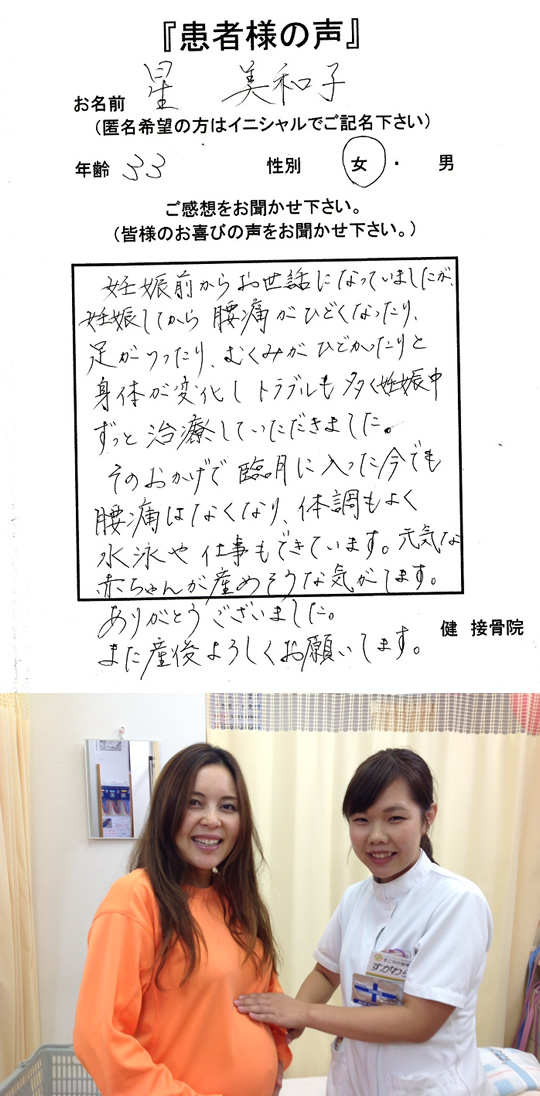 『患者様の声』
お名前 星 美和子
(匿名希望の方はイニシャルでご記名下さい)
年齢 33 性別 女 ・ 男
ご感想をお聞かせ下さい。
(皆様のお喜びの声をお聞かせ下さい。)
妊娠前からお世話になっていましたが、
妊娠してから腰痛がひどくなったり、
足がつったり、むくみがひどかったりと
身体が変化しトラブルも多く妊娠中
ずっと治療していただきました。
そのおかげで臨月に入った今でも
腰痛はなくなり、体調もよく
水泳や仕事もできています。元気な
赤ちゃんが産めそうな気がします。
ありがとうございました。
また産後よろしくお願いします。
健 接骨院